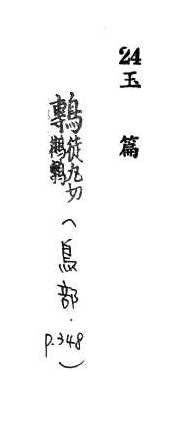 24 玉篇
鷒 徒丸切 (鳥部. p.348)